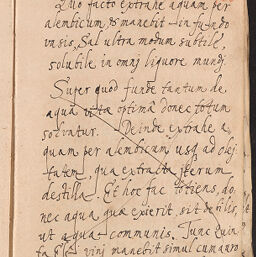 Quo facto extrahe aquam per
alembicum & manebit in fundo
vasis, Sal ultra modum subtile,
solubile in omni liquore mundi
Super quod funde tantum de
aqua vitæ optima donec totum
solvatur. Deinde extrahe a,
quam per alembicum usq ad olej
tatem, qua extracta iterum
destilla. Et hoc fac toties, do,
nec aqua quæ exierit, sit debilis,
ut aqua communis. Tunc Quin
ta E vinj manebit simul cum auro